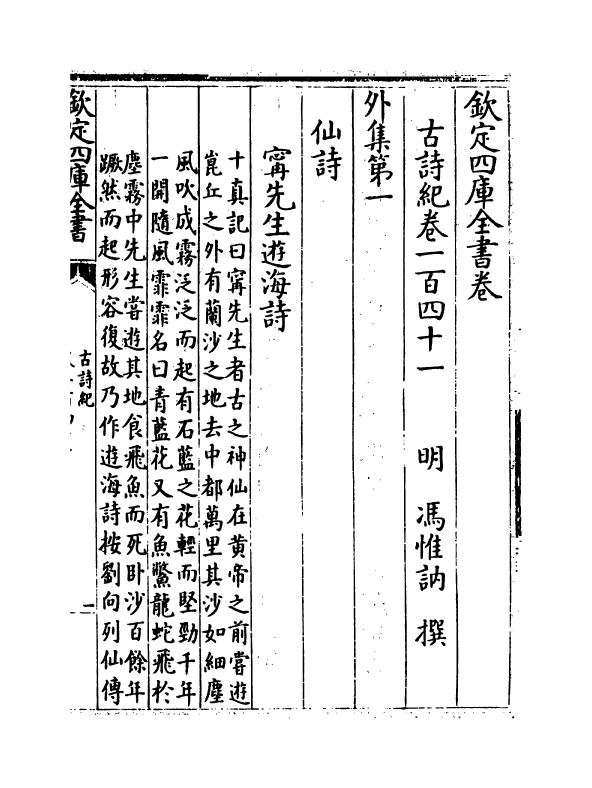 欽定四庫全書卷
古詩紀卷一百四十一 明 馮惟訥 撰
外集第一
仙詩
寗先生遊海詩
十真記曰寗先生者古之神仙在黄帝之前嘗遊
崑丘之外有蘭沙之地去中都萬里其沙如細塵
風吹成霧泛泛而起有石藍之花輕而堅勁千年
一開隨風霏霏名曰青藍花又有魚鱉龍蛇飛於
塵霧中先生嘗遊其地食飛魚而死卧沙百餘年
蹶然而起形容復故乃作遊海詩按劉向列仙傳
欽定四庫全書
古詩紀
一